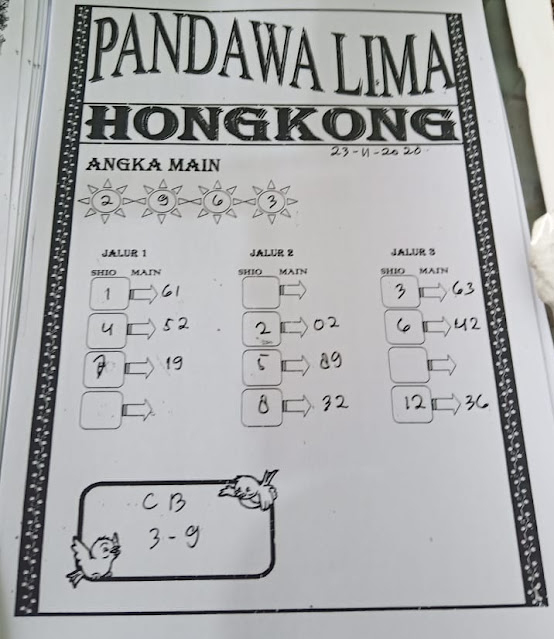 PANDAWA LIMA
HONGKONG
23-11-2020
ANGKA MAIN
2 9 6 3
JALUR 1 JALUR 2 JALUR 3
SHIO MAIN SHIO MAIN SHIO MAIN
1 61 3 63
4 52 2 02 6 42
7 19 5 89
8 32 12 36
CB
3-9